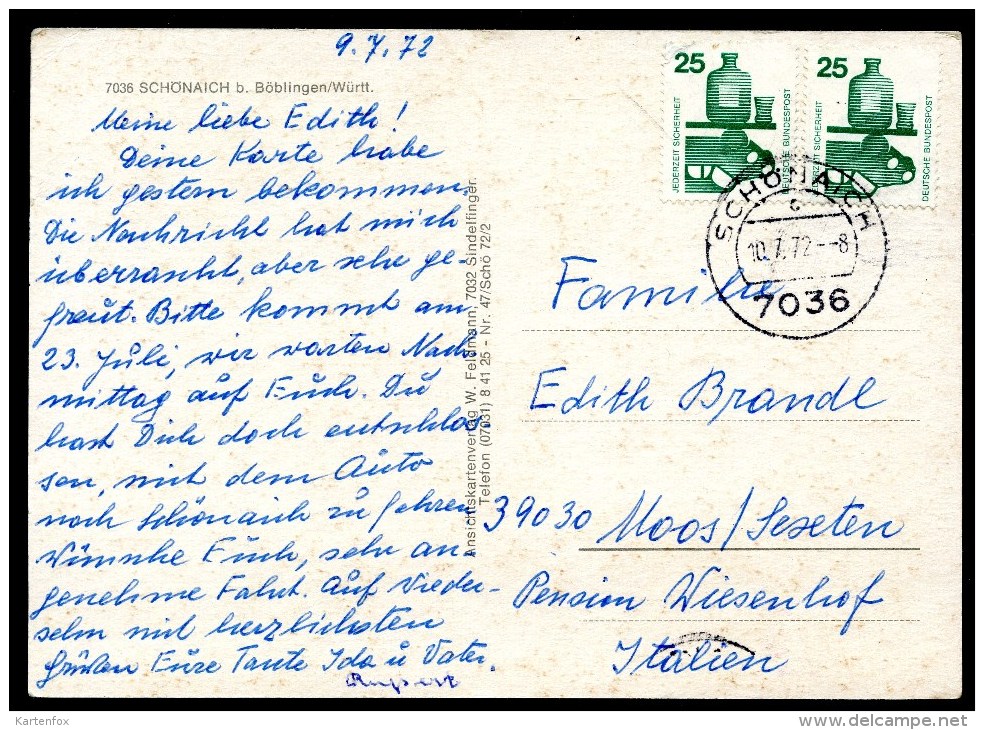 9.7.72
7036 SCHÖNAICH b. Böblingen/Württ.
Meine liebe Edith!
Deine Karte habe
ich gestern bekommen.
Die Nachricht hat mich
überrascht, aber sehr ge-
freut. Bitte kommt am
23. Juli, wir warten Nach-
mittag auf Euch. Du
hast Dich doch entschlos-
sen, mit dem Auto
nach Schönaich zu fahren
Wünsche Euch, sehr an-
genehme Fahrt. Auf Wieder-
sehn mit herzlichsten
Grüßen Eure Tante Ida u Vater.
Ansichtskartenverlag W. Feldmann, 7032 Sindelfingen.
Telefon (07031) 8 41 25 - Nr. 47/Schö 72/2
25
JEDERZEIT SICHERHEIT
DEUTSCHE BUNDESPOST
25
JEDERZEIT SICHERHEIT
DEUTSCHE BUNDESPOST
SCHÖNAICH
c
10.7.72--8
7036
Familie
Edith Brandl
39030 Moos/Sexten
Pension Wiesenhof
Italien
Kartenfox
www.delcampe.net